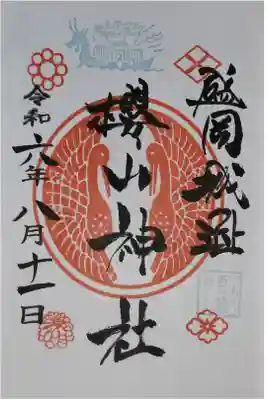 盛岡城趾
櫻山神社
令和六年八月十一日